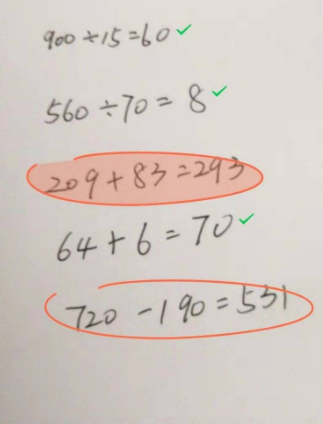 900÷15=60
560÷70=8
209+83=293
64+6=70
720-190=531